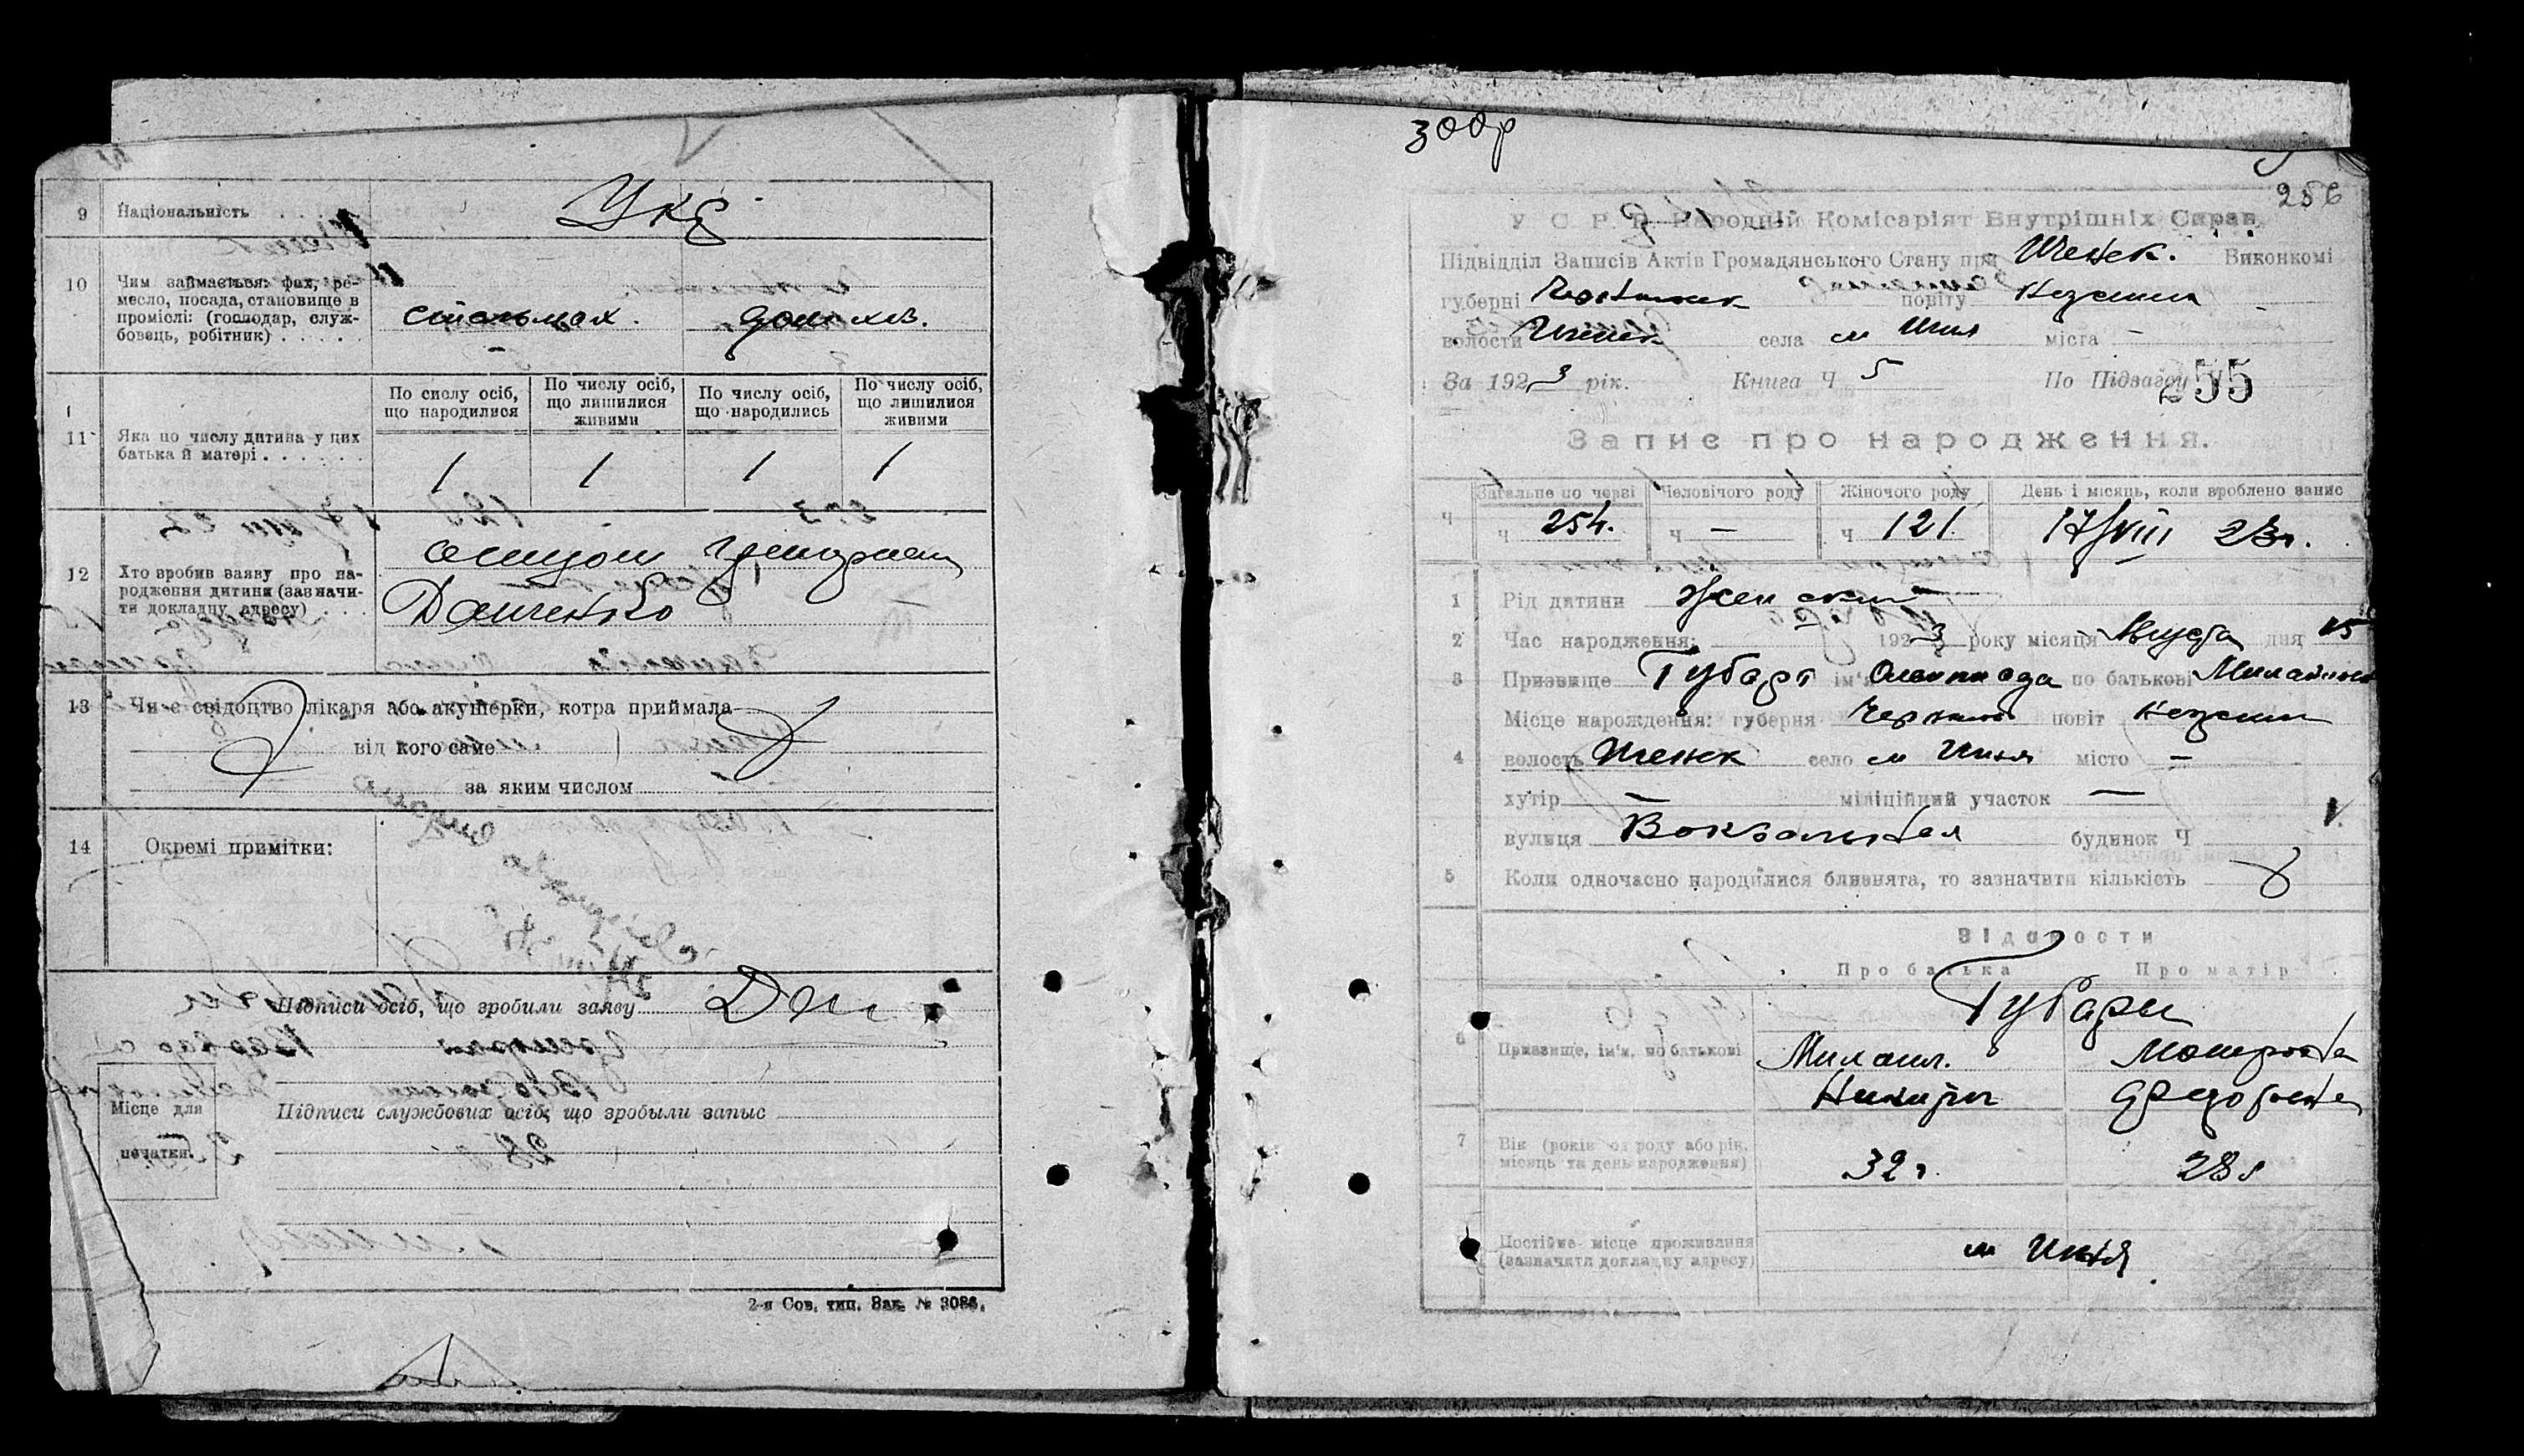 9 Національність . . . Укр
10 Чим займається: фах, ре-
месло, посада, становище в
проміслі: (господар, служ-
бовець, робітник) . . . . .
стельмах. домохоз.
По числу осіб, що народилися
По числу осіб, що лишилися живими
По числу осіб, що народились
По числу осіб, що лишилися живими
11 Яка по числу дитина у цих
батька й матері . . . . . .
1 1 1 1
12 Хто вробив заяву про на-
родження дитини (зазначи-
ти докладну адресу) . . .
Данченко
13 Чи є свідоцтво лікаря або акушерки, котра приймала
від кого саме
за яким числом
14 Окремі примітки:
Підписи осіб, що зробили заяву
Місце для
печатки.
Підписи службових осіб, що зробыли запыс
2-я Сов. тип. Зак. № 3086.
256
У. С. Р. Р. Народній Комісаріят Внутрішніх Справ.
Підвідділ Записів Актів Громадянського Стану при Ичнск. Виконкомі
губерні повіту Нежинск
волости Ичнск села м Ичня міста —
За 1923 рік. Книга Ч 5 По Підвагоу Ч 255
Запис про народження.
Загальне по черзі Человічого роду Жіночого роду День і місяць, коли вроблено запис
Ч ч 254. ч — ч 121 17/VIII 23г.
1 Рід дитини Женский
2 Час народження: 1923 року місяця Августа дня 15
3 Призвище Губарь ім'я по батькові
4 Місце нарождення: губерня Чернигов повіт Нежинск
волость Ичнск село м Ичня місто —
хутір — міліційний участок —
вулиця Вокзальная будинок Ч
5 Коли одночасно народилися близнята, то зазначити кількість
Відомости
Про батька Про матір
Губари
6 Призвище, ім'я, по батькові
Михаил. Мотрона
Никифор Федоровна
7 Вік (років од роду або рік,
місяць та день народження)
32 г. 28 г
Постійне місце проживання
(зазначити докладну адресу)
м Ичня